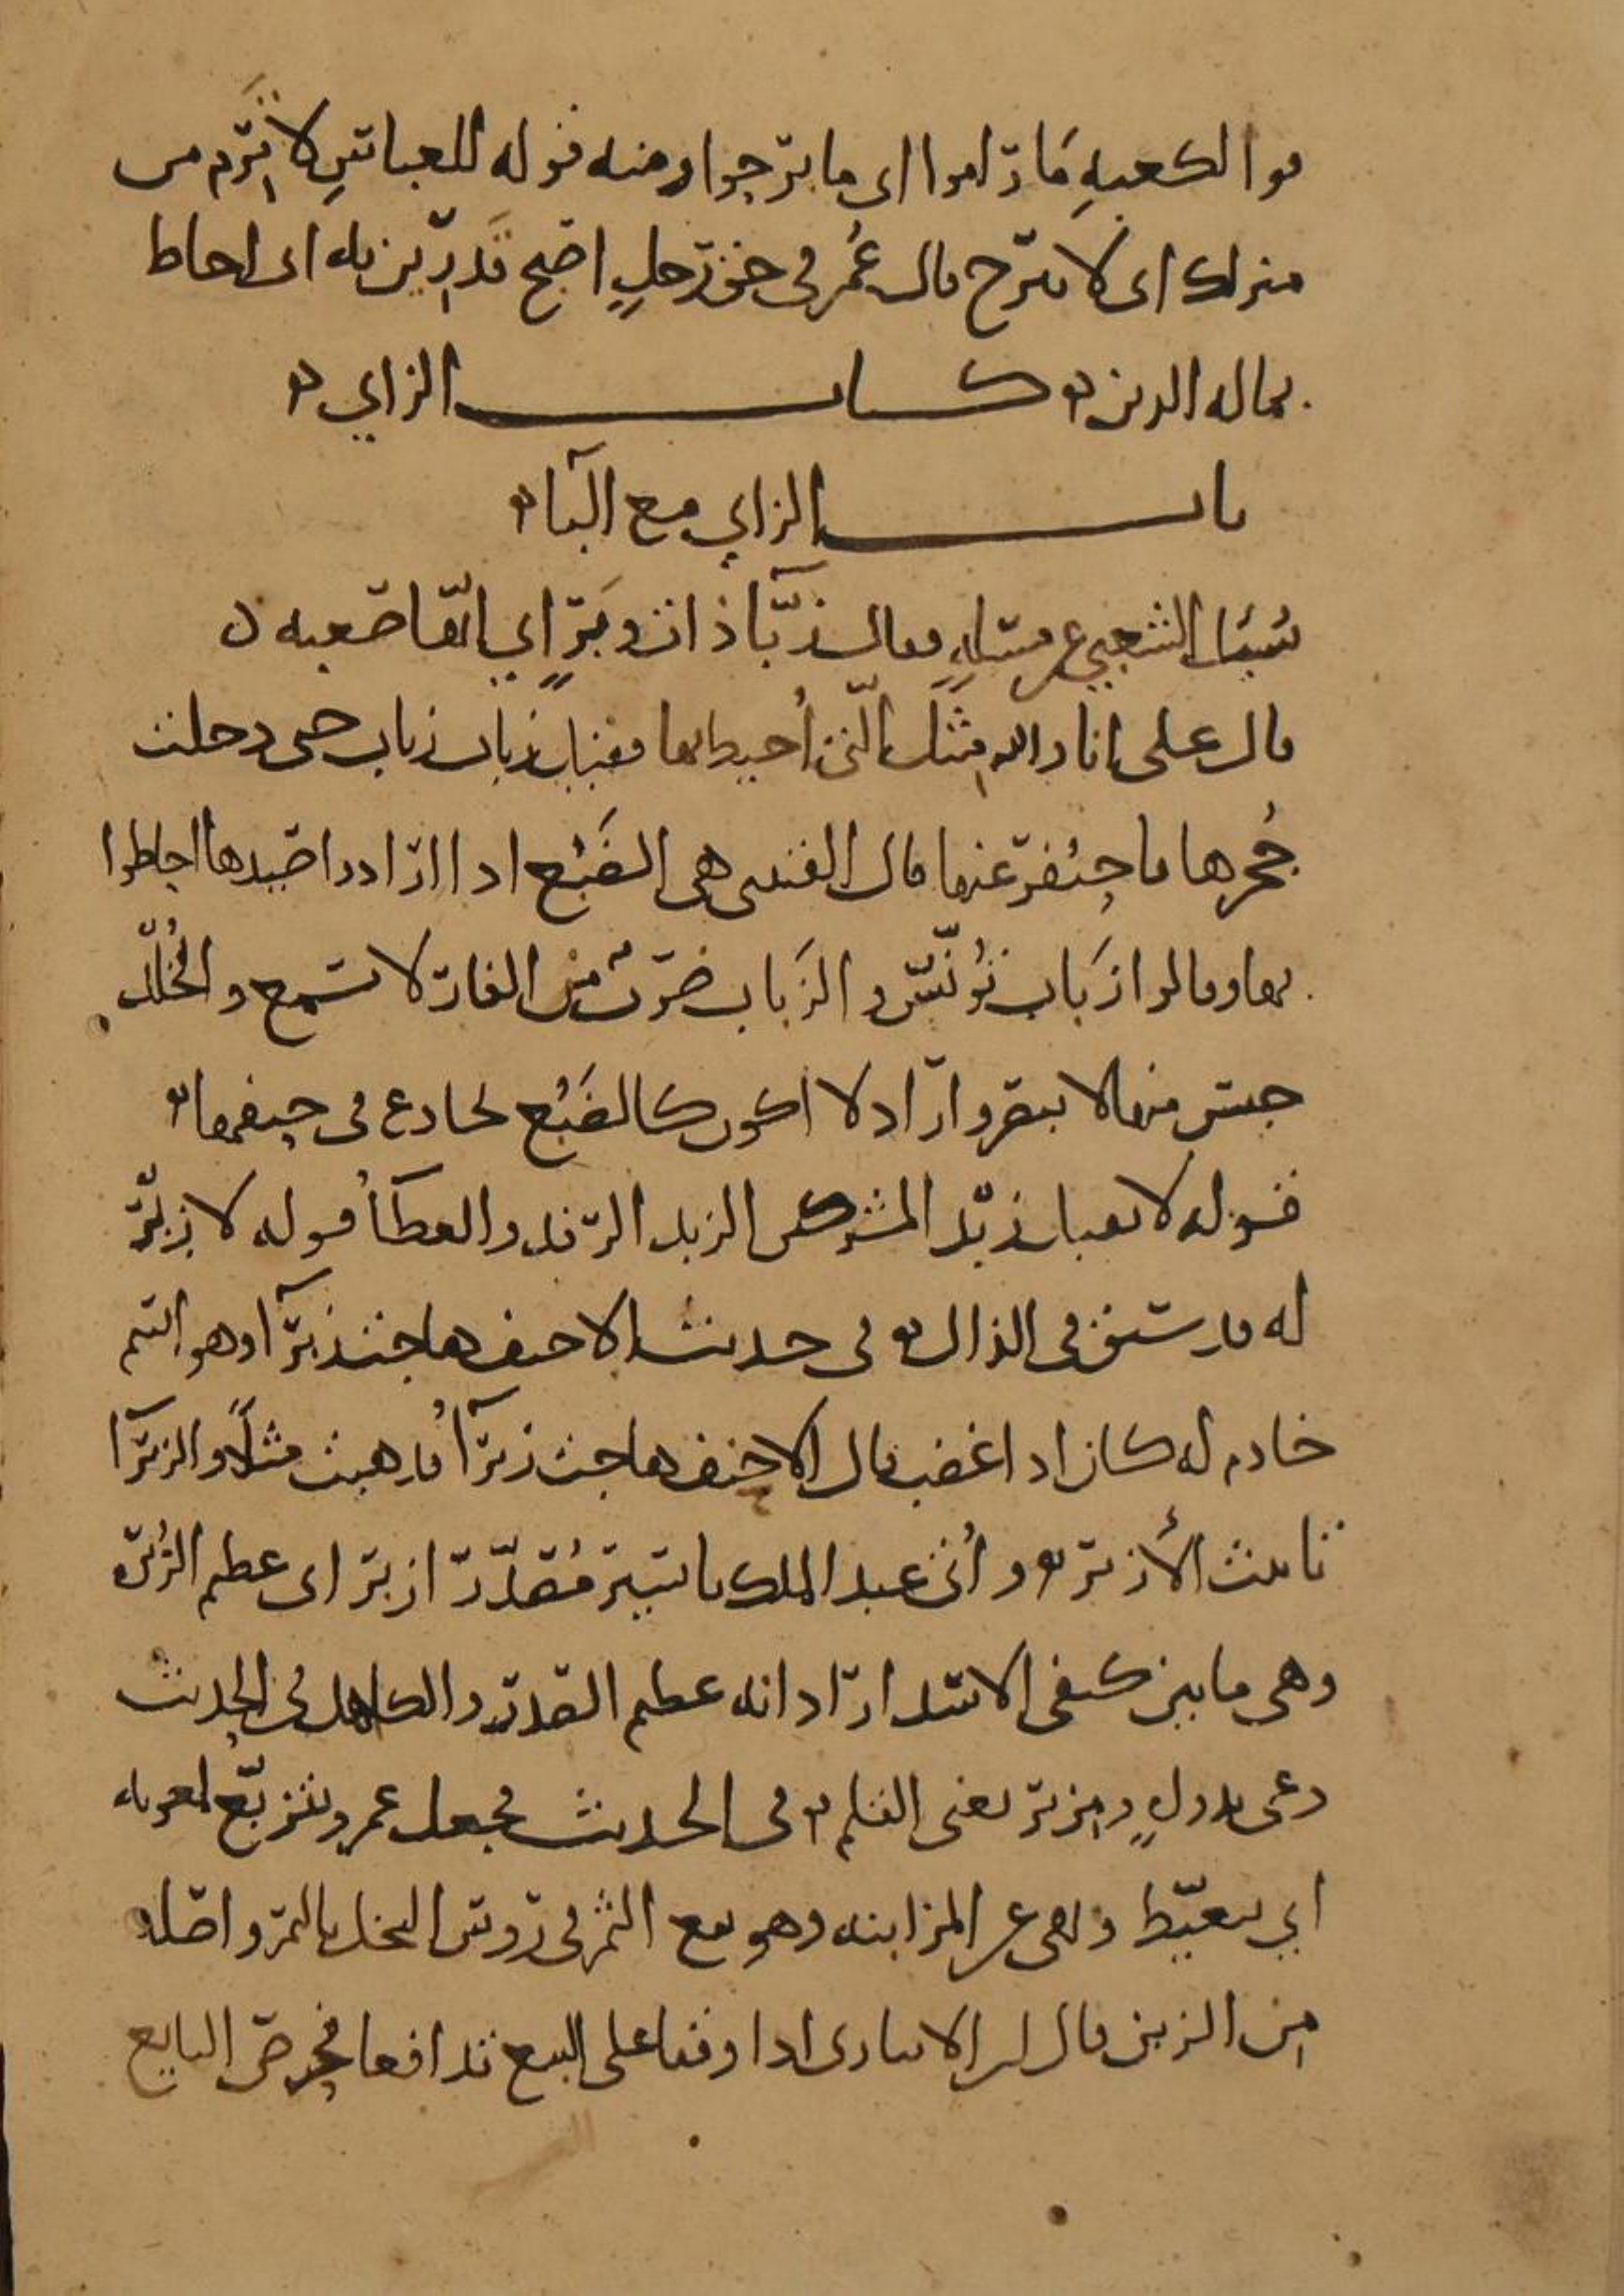 فوا الكعبةِ مَا رَاموا اى ما برحوا ومنه قوله للعباسِ لا تَرِم من
منزلك اى لا تبرح قال عُمر فى حق رَجلٍ اصبح قَد رِين به اى احاط
بماله الدين ۞ كتاب الزاي ۞
باب الزاي مع البآء ۞
سُئل الشعبي عن مسئلهٍ فقال زبَّآ ذات وَبَرٍ اي انها صعبه ن
قال على انا والله مثل التى اُحيط بها فقيل زباب زباب حتى دخلت
جُحرها فاحتفر عنها قال القتيبى هى الضَبُع اذا ارادوا صيدها احاطوا
بها وقالوا زَباب تؤنَّس والزَباب ضربٌ من الفار لا تسمع والخُلد
جنس منها لا يبصر واراد لا اكون كالضَبُع تخادع فى حتفها ۞
قوله لا نقبل زبْد المشركين الزبد الرفد والعطآءُ قوله لا زبر
له قد سبق فى الذال ۞ فى حديث الاحنف هاجت زبرآء وهو اسم
خادم له كان اذا غضب قال الاحنف هاجت زبرآءُ فذهبت مثلاً والزبرآء
تانيث الأزبر ۞ واُتى عبد الملك باسير مُصدَّر ازبر اى عظيم الزُبرة
وهى ما بين كتفى الاسد اراد انه عظيم الصدر والكاهل فى الحديث
دعى بدواةٍ ومِزبر يعنى القلم ۞ فى الحديث فجعل عمرو يتزبّع لمعويه
اي يتغيّظ ونهى عن المزابنه وهو بيع الثمر فى روس النخل بالتمر واصله
من الزبن قال ابن الانبارى اذا وقفا على البيع تدافعا فحرص البايع